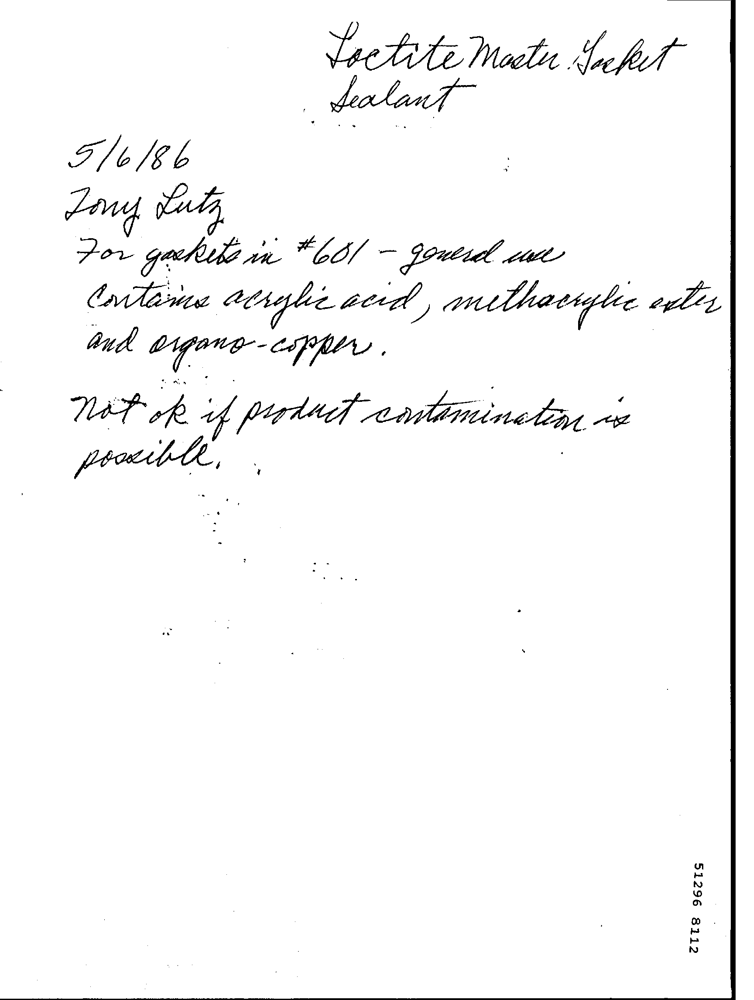 Loctite Master Gasket
Sealant
5/6/86
Tony Lutz
For gaskets in #601 - general use
Contains acrylic acid, methacrylic ester
and organo-copper.
Not ok if product contamination is
possible.
51296 8112